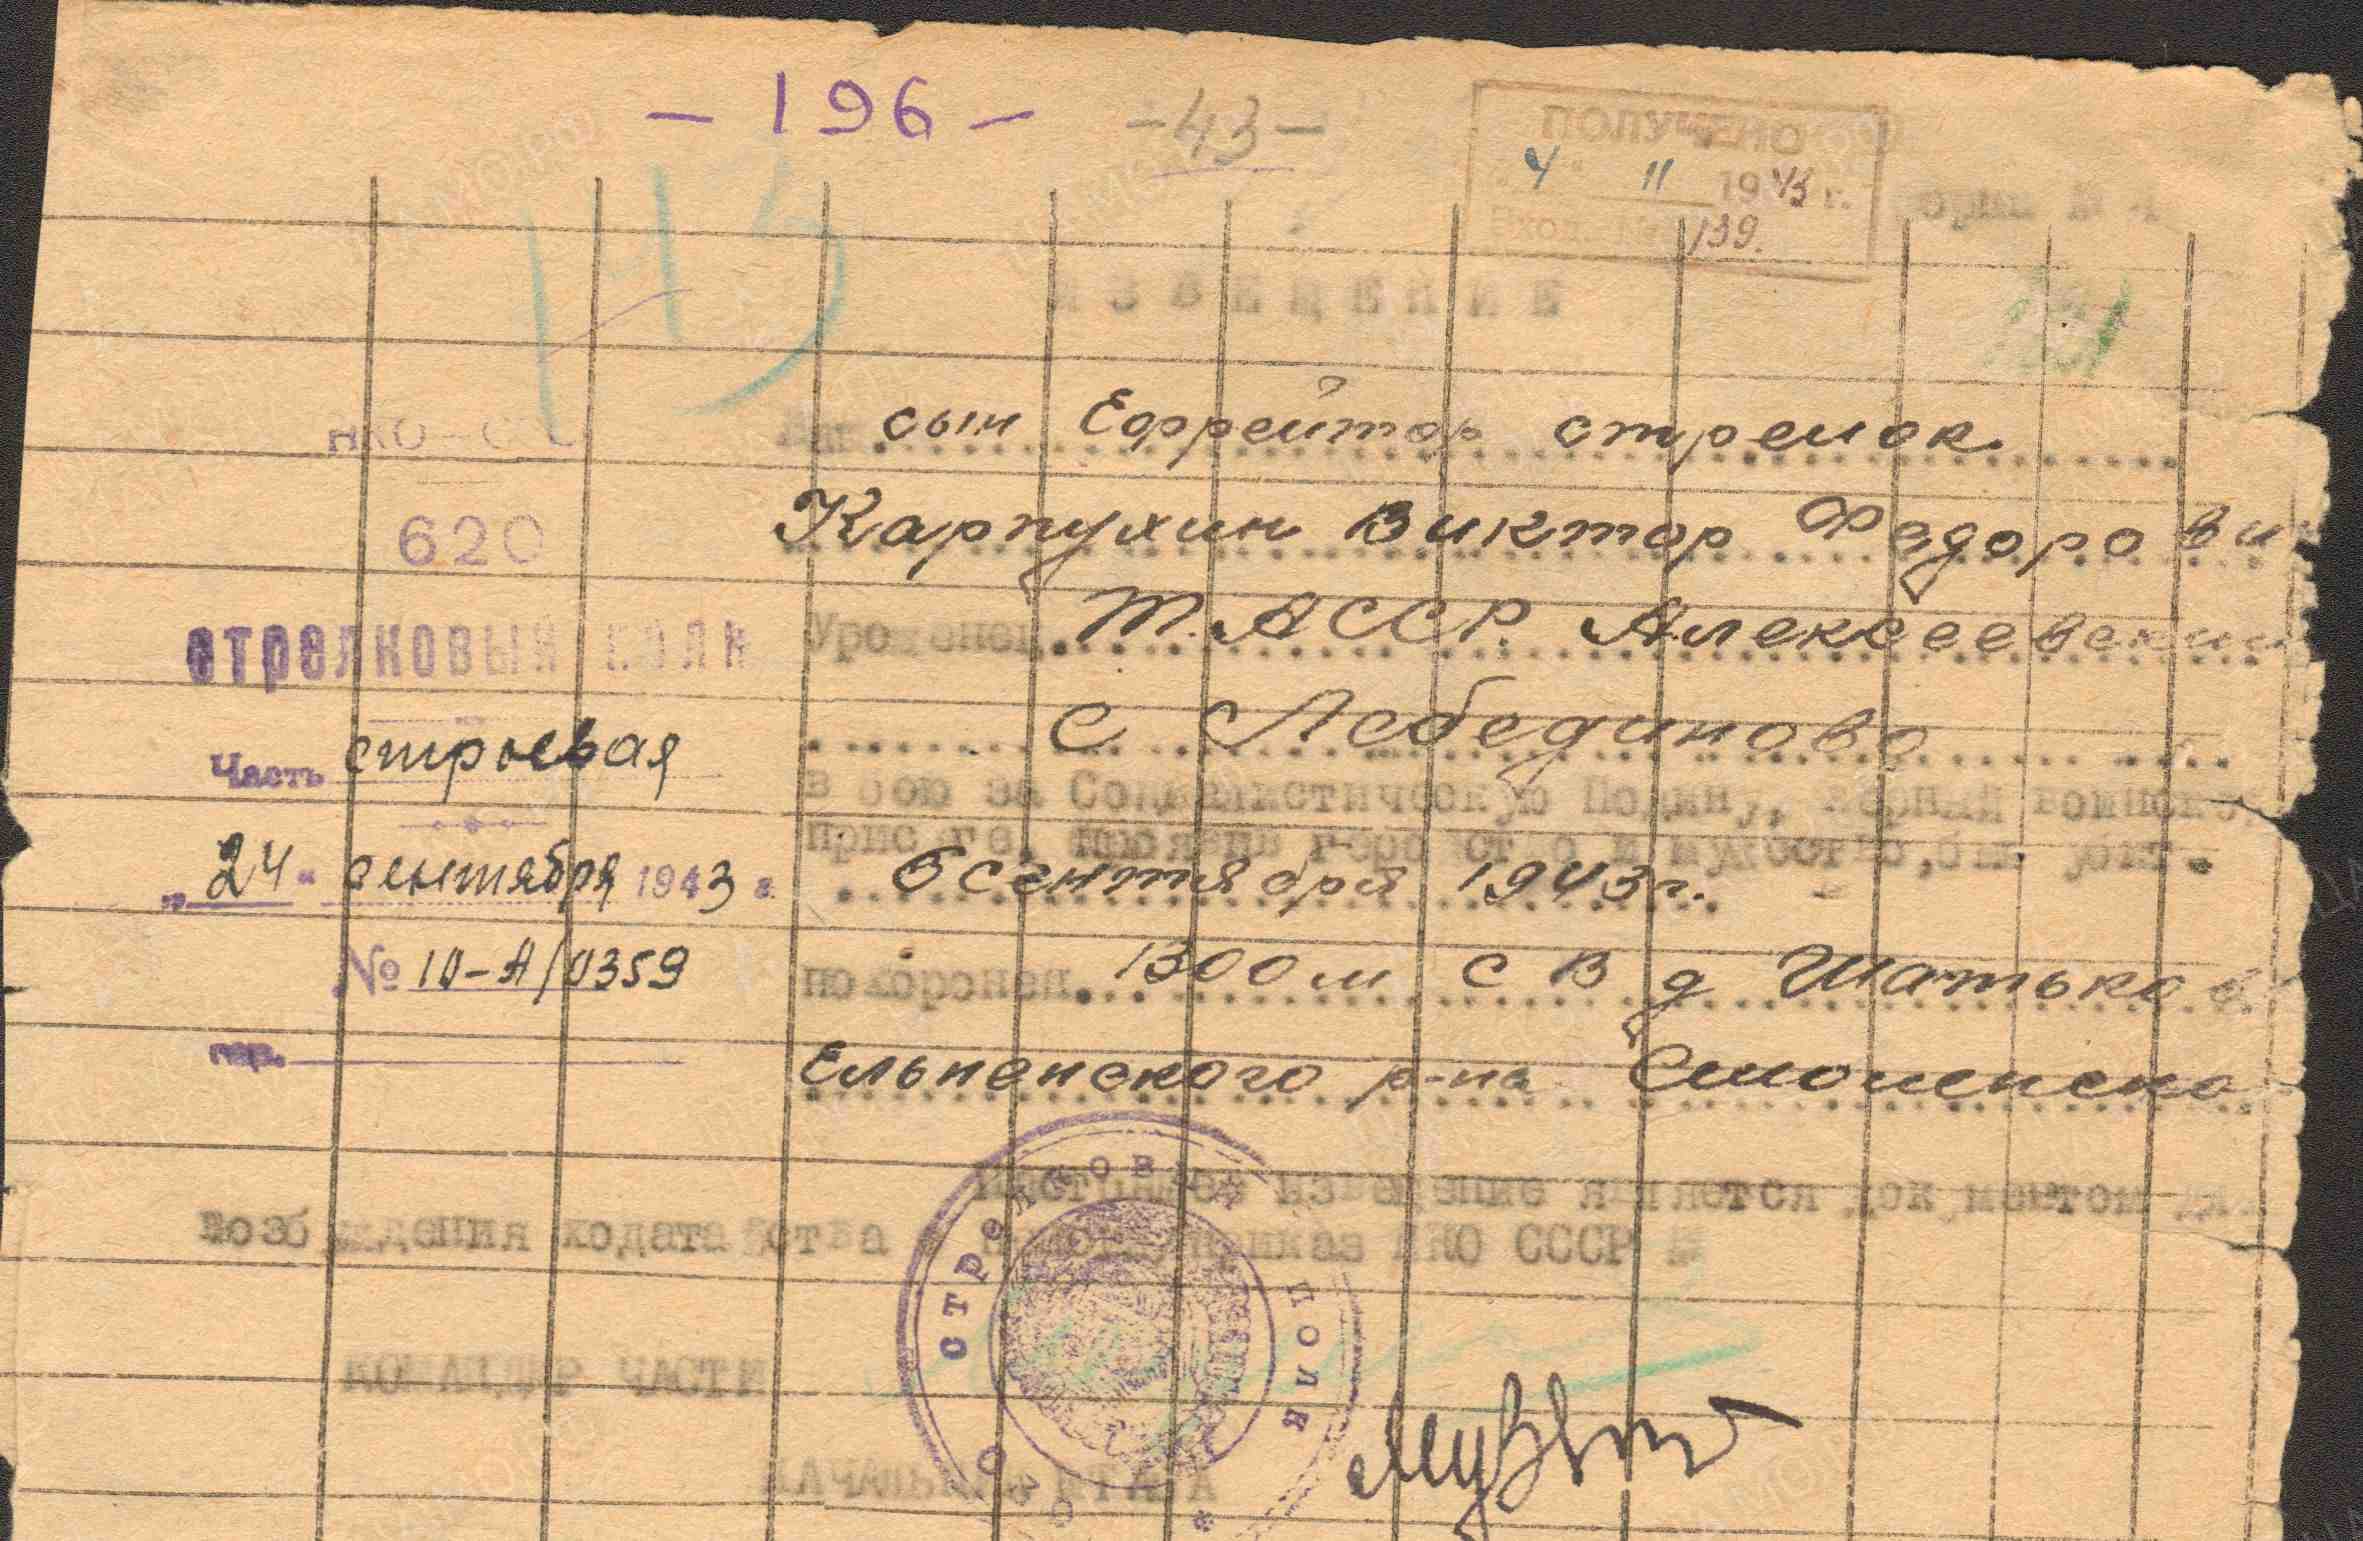 - 196 -
- 43 -
ПОЛУЧЕНО
"4" 11 1943 г.
Вход. № 139.
Форма № 4
ИЗВЕЩЕНИЕ
НКО-СССР
620
стрелковый полк
Часть строевая
"24" сентября 1943 г.
№ 10-А/0359
гор.
Ваш сын Ефрейтор стрелок
Карпухин Виктор Федорови
Уроженец Т.АССР. Алексеевский
с Лебединово
в бою за Социалистическую Родину, верный воинской
присяге, проявив геройство и мужество, был убит.
6 сентября 1943 г.
похоронен 1300 м С В д Шатьково
Ельненского р-на Смоленско
Настоящее извещение является документом для
возбуждения ходатайства о приказ НКО СССР №
КОМАНДИР ЧАСТИ
НАЧАЛЬНИК ШТАБА
СТРЕЛКОВЫЙ ПОЛК
620